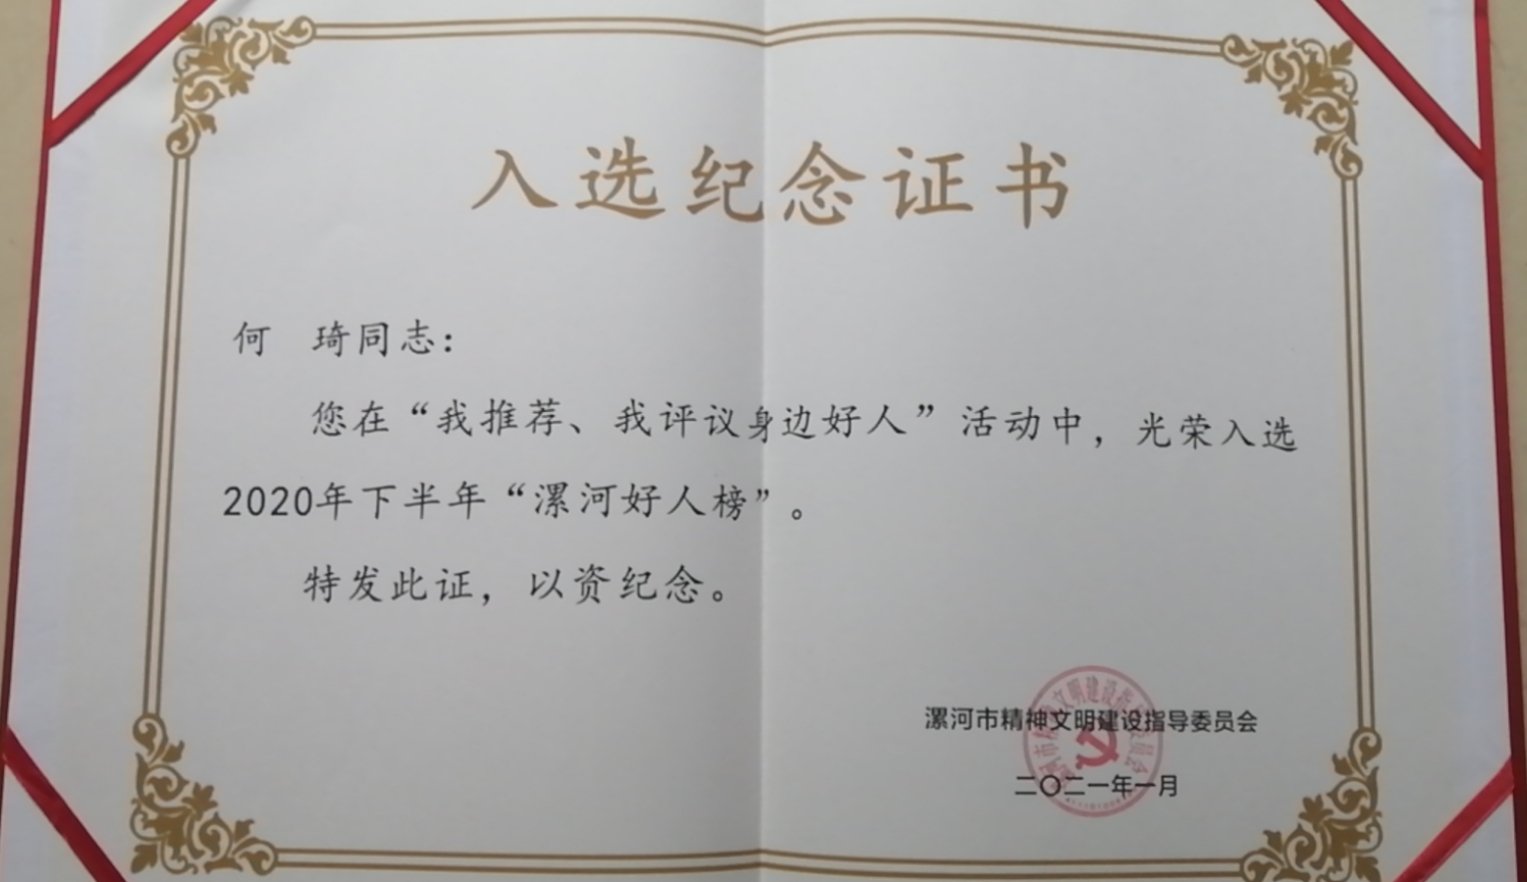 入选纪念证书
何 琦同志：
您在“我推荐、我评议身边好人”活动中，光荣入选
2020年下半年“漯河好人榜”。
特发此证，以资纪念。
漯河市精神文明建设指导委员会
二〇二一年一月